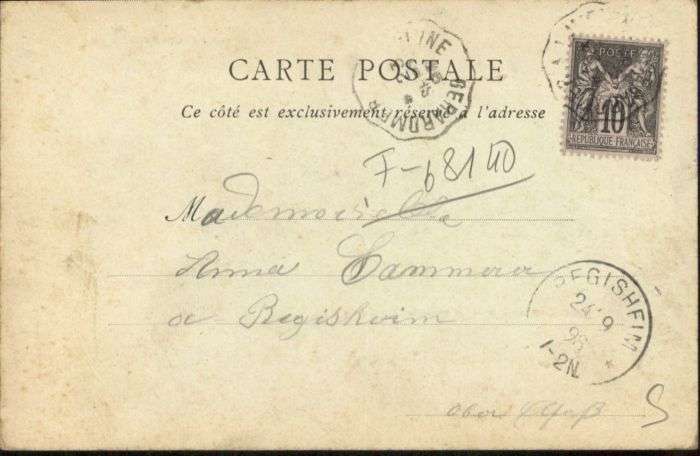 CARTE POSTALE
Ce côté est exclusivement réservé à l'adresse
POSTE
10
REPUBLIQUE FRANÇAISE
GERARDMER
F-68140
Mademoiselle
Anna
a Regisheim
REGISHEIM
24 9
98
1-2N
Ober Elsaß